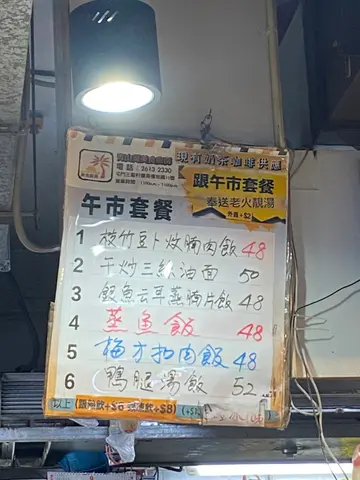 現有奶茶咖啡供應
電話：2613-2330
跟午市套餐
奉送老火靚湯
外賣+$2
午市套餐
1 枝竹豆卜炆腩肉飯 48
2 干炒三絲油面 50
3 銀魚云耳蒸腩片飯 48
4 蒸魚飯 48
5 梅才扣肉飯 48
6 鴨腿湯飯 52